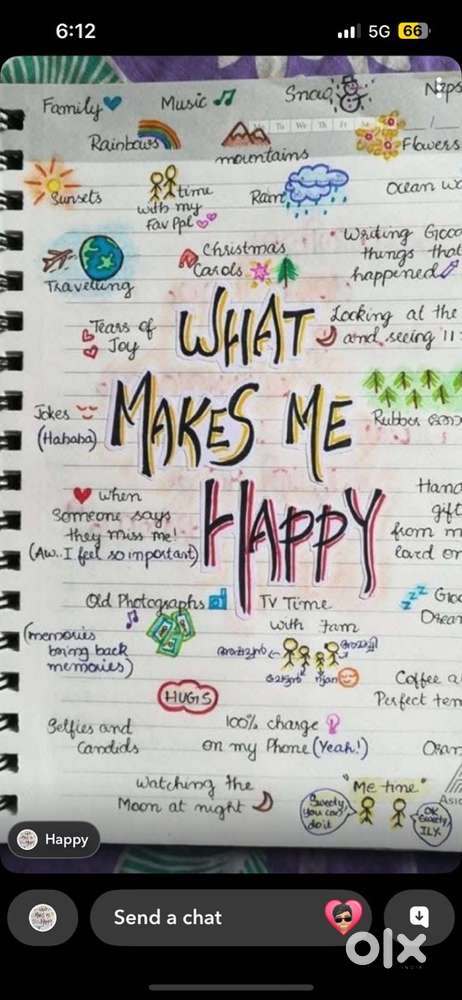 6:12
5G 66
Family
Music
Snow
Naps
Rainbows
mountains
Flowers
Sunsets
time
with my
Fav Ppl
Rain
Ocean
Christmas
Carols
Writing Good
things that
happened
Travelling
Tears of
Joy
WHAT
MAKES ME
HAPPY
Looking at the
and seeing 11:
Jokes
(Hahaha)
Rubber
when
Someone says
they miss me!
(Aw.. I feel so important)
Hand
gift
from
Old Photographs
TV Time
with Fam
(memories
bring back
memories)
അമ്മ
ഞാൻ
HUGS
Coffee
Perfect
Selfies and
Candids
100% charge
on my Phone (Yeah!)
Watching the
Moon at night
"Me time"
Sweety
you can
do it
OK
Sweety,
ILY.
Happy
Send a chat
olx
INDIA